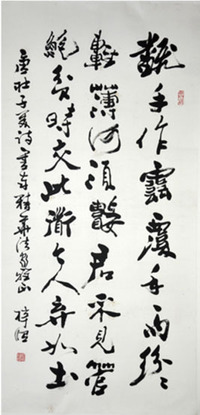 翻手作雲覆手雨紛紛
輕薄何須數君不見管
鮑貧時交此道今人棄如土
唐杜子美詩書奉桂華法家